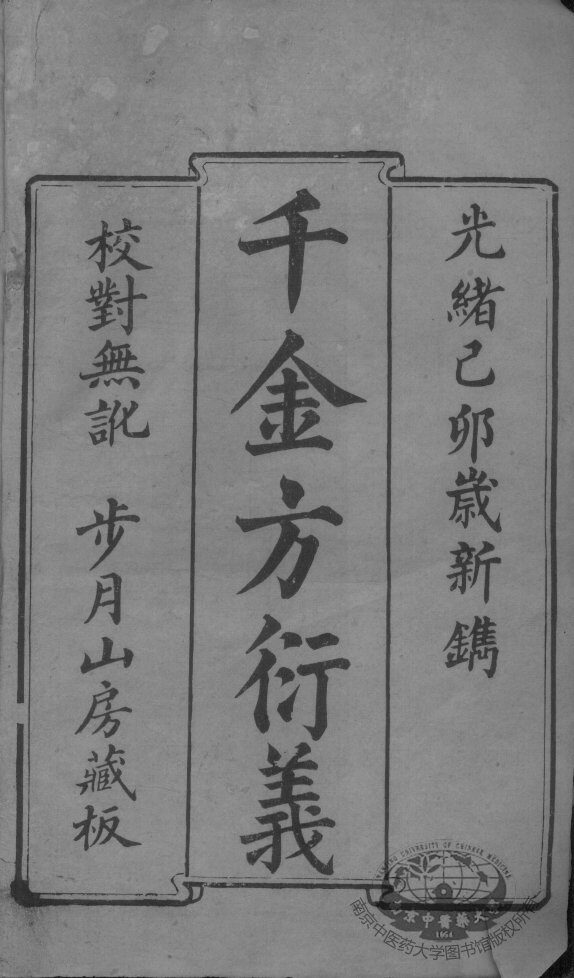 光緒己卯歲新鐫
千金方衍義
校對無訛　步月山房藏板
UNIVERSITY OF CHINESE MEDICINE
南京中醫藥大學
1954
南京中医药大学图书馆版权所有